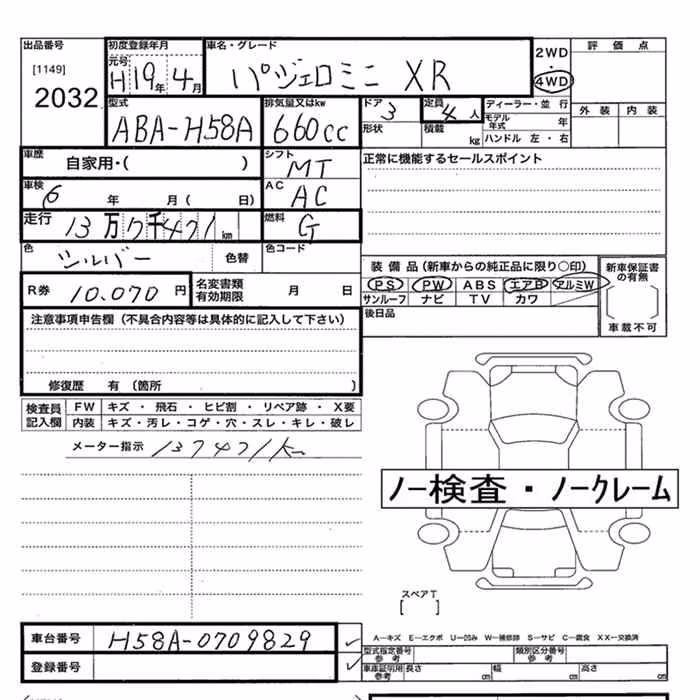 出品番号 初度登録年月 車名・グレード 2WD 評価点
[1149] 元号 H19年4月 パジェロミニ XR 4WD
2032 型式 ABA-H58A 排気量又はkw 660cc ドア 3 定員 4人 ディーラー・並行 外装 内装
形状 積載 kg モデル年式 年
ハンドル 左・右
車歴 自家用・( ) シフト MT 正常に機能するセールスポイント
車検 6 年 月( 日) AC AC
走行 13万7千471km 燃料 G
色 シルバー 色替 色コード 装備品(新車からの純正品に限り○印) 新車保証書の有無
R券 10.070円 名変書類有効期限 月 日 PS PW ABS エアB アルミW
サンルーフ ナビ TV カワ
後日品 車載不可
注意事項申告欄(不具合内容等は具体的に記入して下さい)
修復歴 有(箇所 )
検査員記入欄 FW キズ・飛石・ヒビ割・リペア跡・X要
内装 キズ・汚レ・コゲ・穴・スレ・キレ・破レ
メーター指示 137471km
ノー検査・ノークレーム
スペアT
[ ]
車台番号 H58A-0709829 A―キズ E―エクボ U―凹み W―補修跡 S―サビ C―腐食 XX―交換済
型式指定番号 参考 類別区分番号 参考
登録番号 車庫証明用 参考 長さ cm 幅 cm 高さ cm